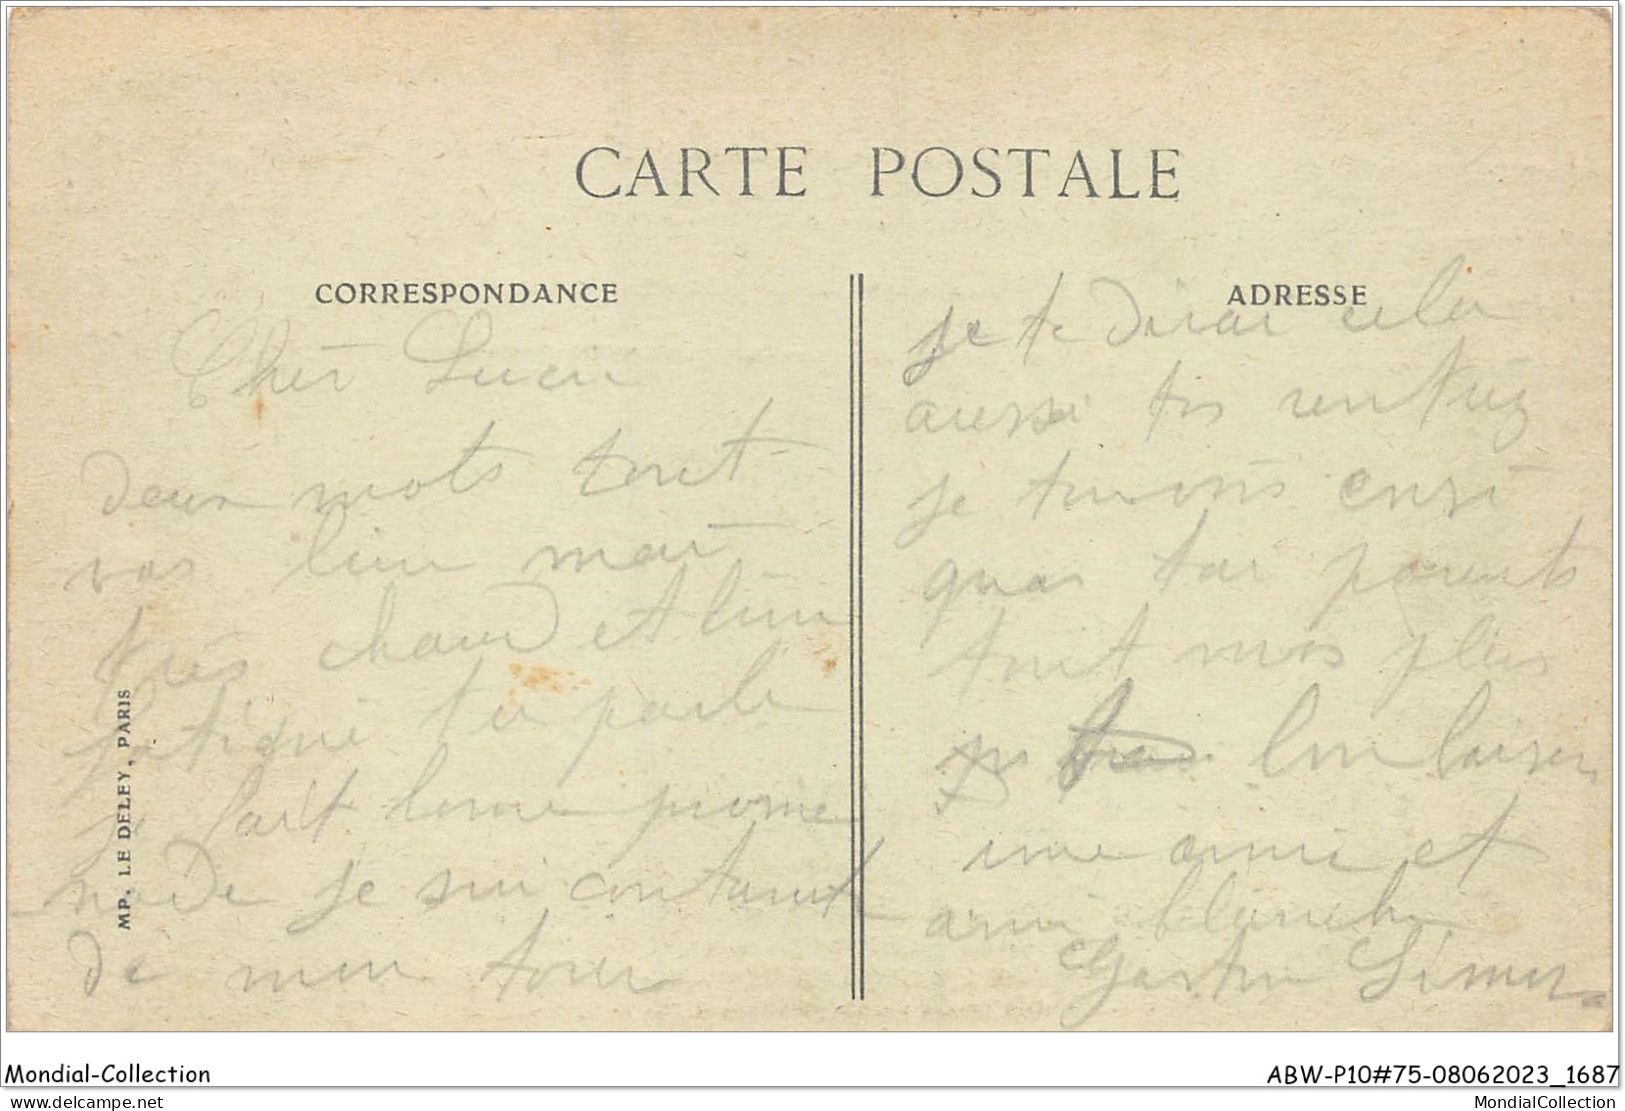 CARTE POSTALE
CORRESPONDANCE
ADRESSE
Cher Lucien
deux mots tout
vas bien mai
très chaud et bien
fatigué tu parle
je fait bonne prome
nade je sui contant
de mon
je te dirai cela
aussi rentrez
je ensi
quas tai parents
tout mos plus
bon baiser
une amie et
ami blanche
Gaston Simon
MP. LE DELEY, PARIS
Mondial-Collection
ABW-P10#75-08062023_1687
www.delcampe.net
MondialCollection